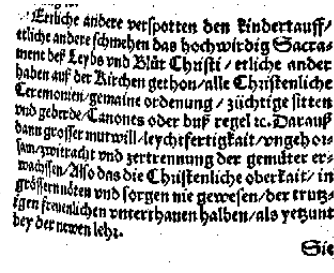 Etliche andere verspotten den kindertauff/
etliche andere schmehen das hochwirdig Sacra-
ment deß Leybs vnd Blůt Christi / etliche ander
haben auf der Kirchen gethon/alle Christenliche
Ceremonien/gemaine ordenung / züchtige sitten
vnd geberde/Canones oder bůß regel ꝛc. Darauß
dann grosser mutwill/leychtfertigkait/vngehor-
sam/zwitracht vnd zertrennung der gemüter er-
wachssen/Also das die Christenliche oberkait/in
grössern nöten vnd sorgen nie gewesen/der trutz-
igen freuenlichen vnterthanen halben/als yetzunt
bey der newen lehr.
Sie